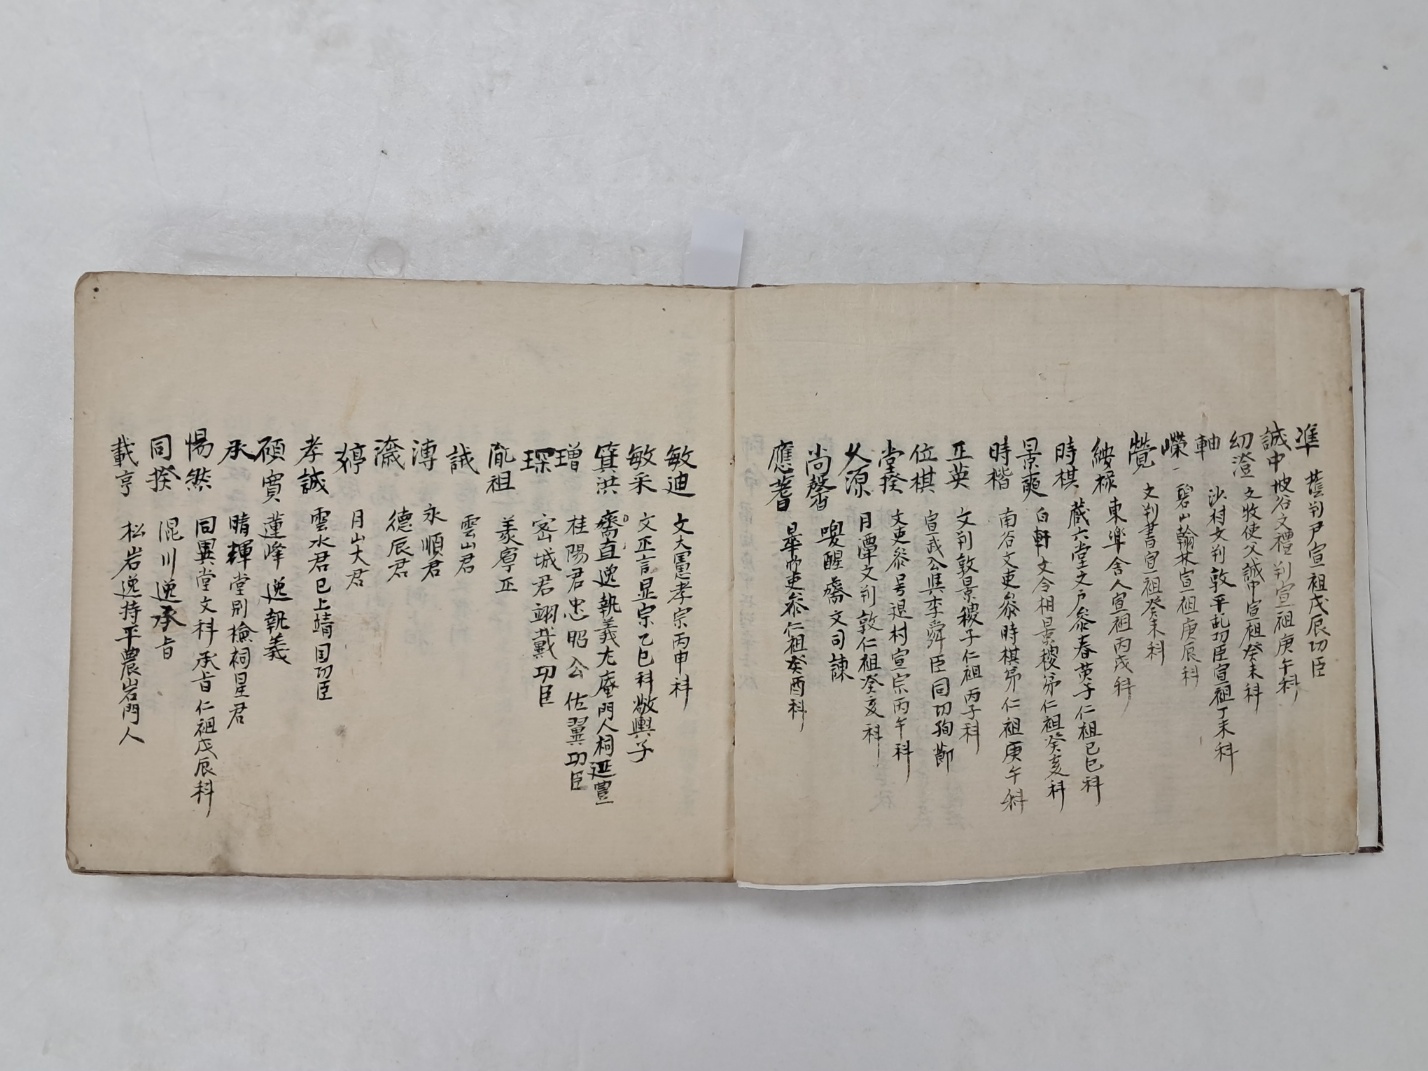 準 蔭判尹宣祖戊辰功臣
誠中 坡谷文禮判宣祖庚午科
幼澄 文牧使父誠中宣祖癸未科
軸 沙村文判敦平乱功臣宣祖丁未科
嶸 碧山翰林宣祖庚辰科
覺 文判書宣祖癸未科
綏祿 東皐舍人宣祖丙戌科
時楳 藏六堂文戶參春黃子仁祖己巳科
景奭 白軒文令相景稷弟仁祖癸亥科
時楷 南谷文吏參時楳弟仁祖庚午科
正英 文判敦景稷子仁祖丙子科
位楳 宣武公與李舜臣同功殉節
堂揆 文吏參号退村宣宗丙午科
久源 月潭文判敦仁祖癸亥科
尚馨 喚醒齋文司諫
應蓍 吏參仁祖癸酉科
敏迪 文大憲孝宗丙申科
敏采 文正言显宗乙巳科敬輿子
箕洪 齋直逸執義尤庵門人祠
增 桂陽君忠昭公佐翼功臣
琛 密城君翊戴功臣
胤祖 義寧正
誠 雲山君
溥 永順君
濊 德辰君
婷 月山大君
孝誠 雲水君已上靖国功臣
碩實 蓮峰逸執義
承 晴輝堂別檢祠星君
惕然 同異堂文科承旨仁祖戊辰科
同揆 混川逸承旨
載亨 松岩逸持平農岩門人